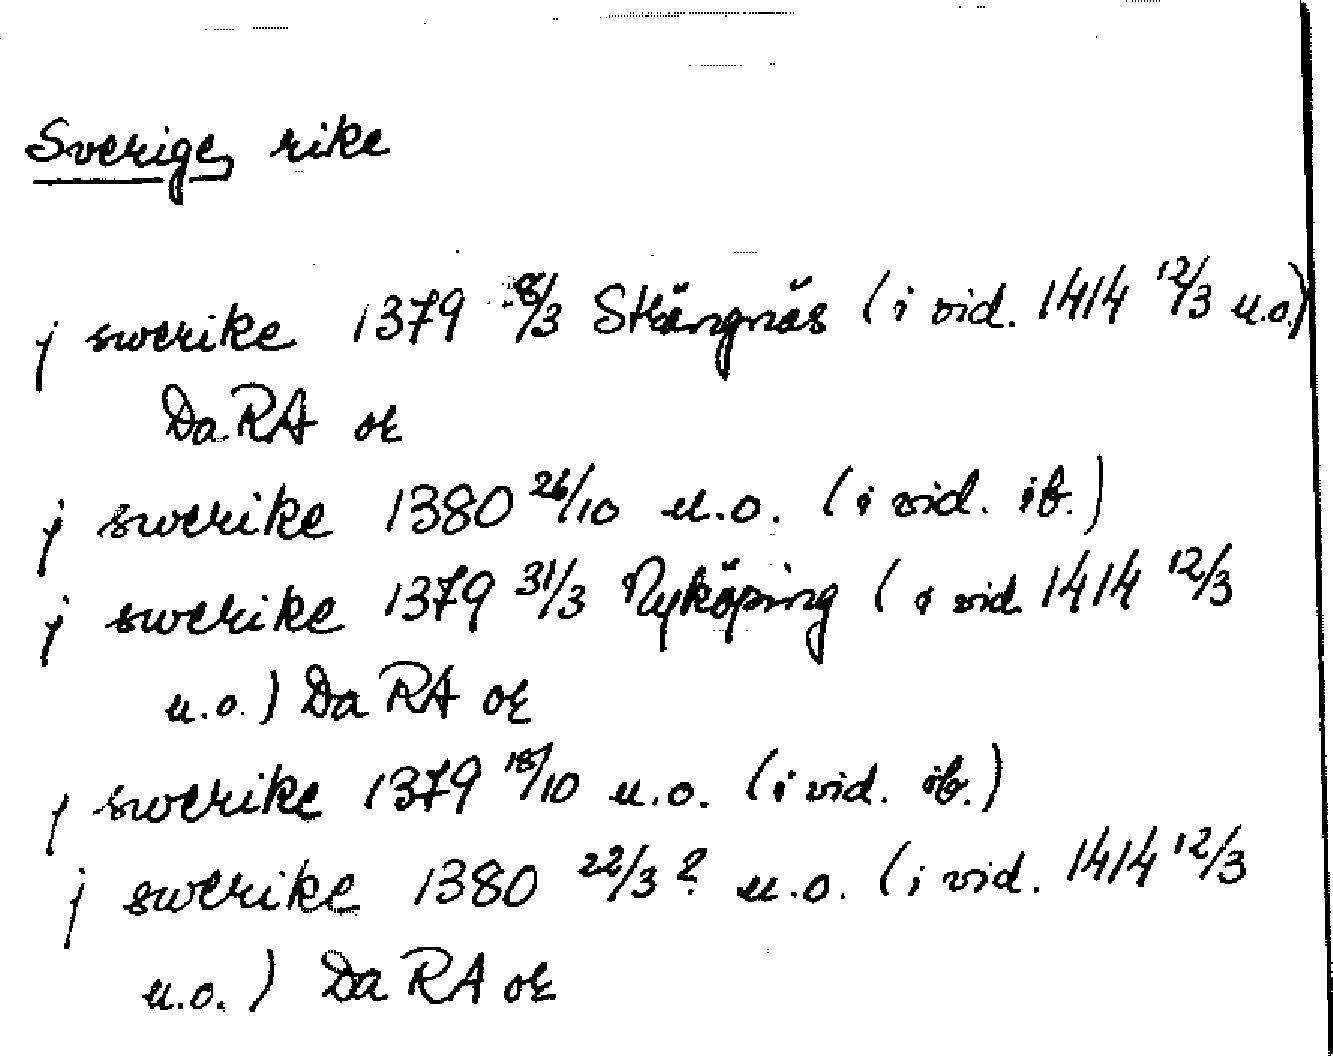 Sverige, rike
j swerike 1379 8/3 Strängnäs (i vid. 1414 12/3 u.o.)
DaRA or
j swerike 1380 26/10 u.o. (i vid. ib.)
j swerike 1379 31/3 Nyköping (i vid. 1414 12/3
u.o.) DaRA or
j swerike 1379 18/10 u.o. (i vid. ib.)
j swerike 1380 22/3? u.o. (i vid. 1414 12/3
u.o.) DaRA or